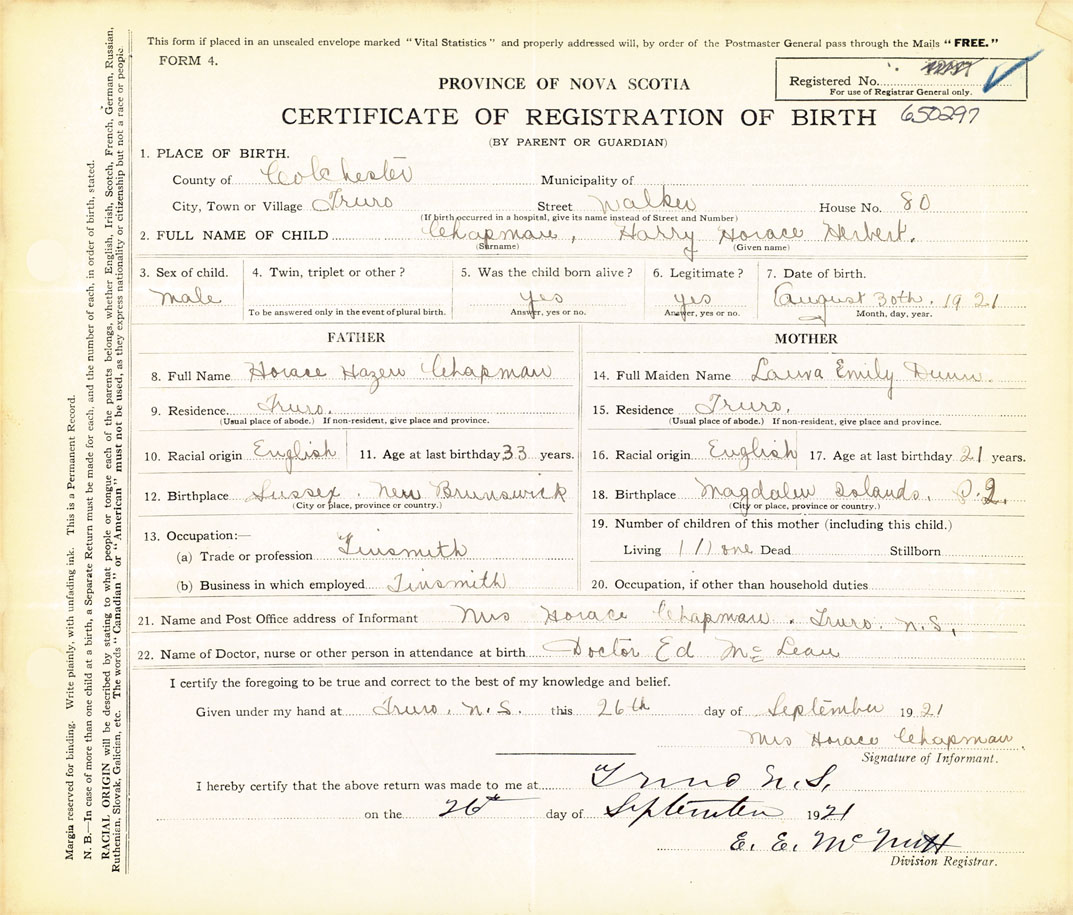 This form if placed in an unsealed envelope marked "Vital Statistics" and properly addressed will, by order of the Postmaster General pass through the Mails "FREE."
FORM 4.
Registered No.
For use of Registrar General only.
PROVINCE OF NOVA SCOTIA
CERTIFICATE OF REGISTRATION OF BIRTH 650297
(BY PARENT OR GUARDIAN)
1. PLACE OF BIRTH.
County of Colchester Municipality of
City, Town or Village Truro Street Walker House No. 80
(If birth occurred in a hospital, give its name instead of Street and Number)
2. FULL NAME OF CHILD Chapman, Harry Horace Herbert.
(Surname) (Given name)
3. Sex of child. 4. Twin, triplet or other? 5. Was the child born alive? 6. Legitimate? 7. Date of birth.
Male yes yes August 30th. 1921
To be answered only in the event of plural birth. Answer, yes or no. Answer, yes or no. Month, day, year.
FATHER
8. Full Name Horace Hazen Chapman
9. Residence. Truro.
(Usual place of abode.) If non-resident, give place and province.
10. Racial origin English 11. Age at last birthday 33 years.
12. Birthplace Sussex. New Brunswick
(City or place, province or country.)
13. Occupation:—
(a) Trade or profession Tinsmith
(b) Business in which employed Tinsmith
MOTHER
14. Full Maiden Name Laura Emily Dunn.
15. Residence Truro.
(Usual place of abode.) If non-resident, give place and province.
16. Racial origin English 17. Age at last birthday 21 years.
18. Birthplace Magdalen Islands. P.Q.
(City or place, province or country.)
19. Number of children of this mother (including this child.)
Living (1) one Dead Stillborn
20. Occupation, if other than household duties
21. Name and Post Office address of Informant Mrs Horace Chapman. Truro. N.S.
22. Name of Doctor, nurse or other person in attendance at birth Doctor Ed McLean
I certify the foregoing to be true and correct to the best of my knowledge and belief.
Given under my hand at Truro. N.S. this 26th day of September 1921
Mrs Horace Chapman.
Signature of Informant.
I hereby certify that the above return was made to me at Truro N.S.
on the 26th day of September 1921
E. E. McNutt
Division Registrar.
Margin reserved for binding. Write plainly, with unfading ink. This is a Permanent Record.
N. B.—In case of more than one child at a birth, a Separate Return must be made for each, and the number of each, in order of birth, stated.
RACIAL ORIGIN will be described by stating to what people or tongue each of the parents belongs, whether English, Irish, Scotch, French, German, Russian,
Ruthenian, Slovak, Galician, etc. The words "Canadian" or "American" must not be used, as they express nationality or citizenship but not a race or people.